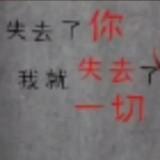 失去了你
我就失去了
一切